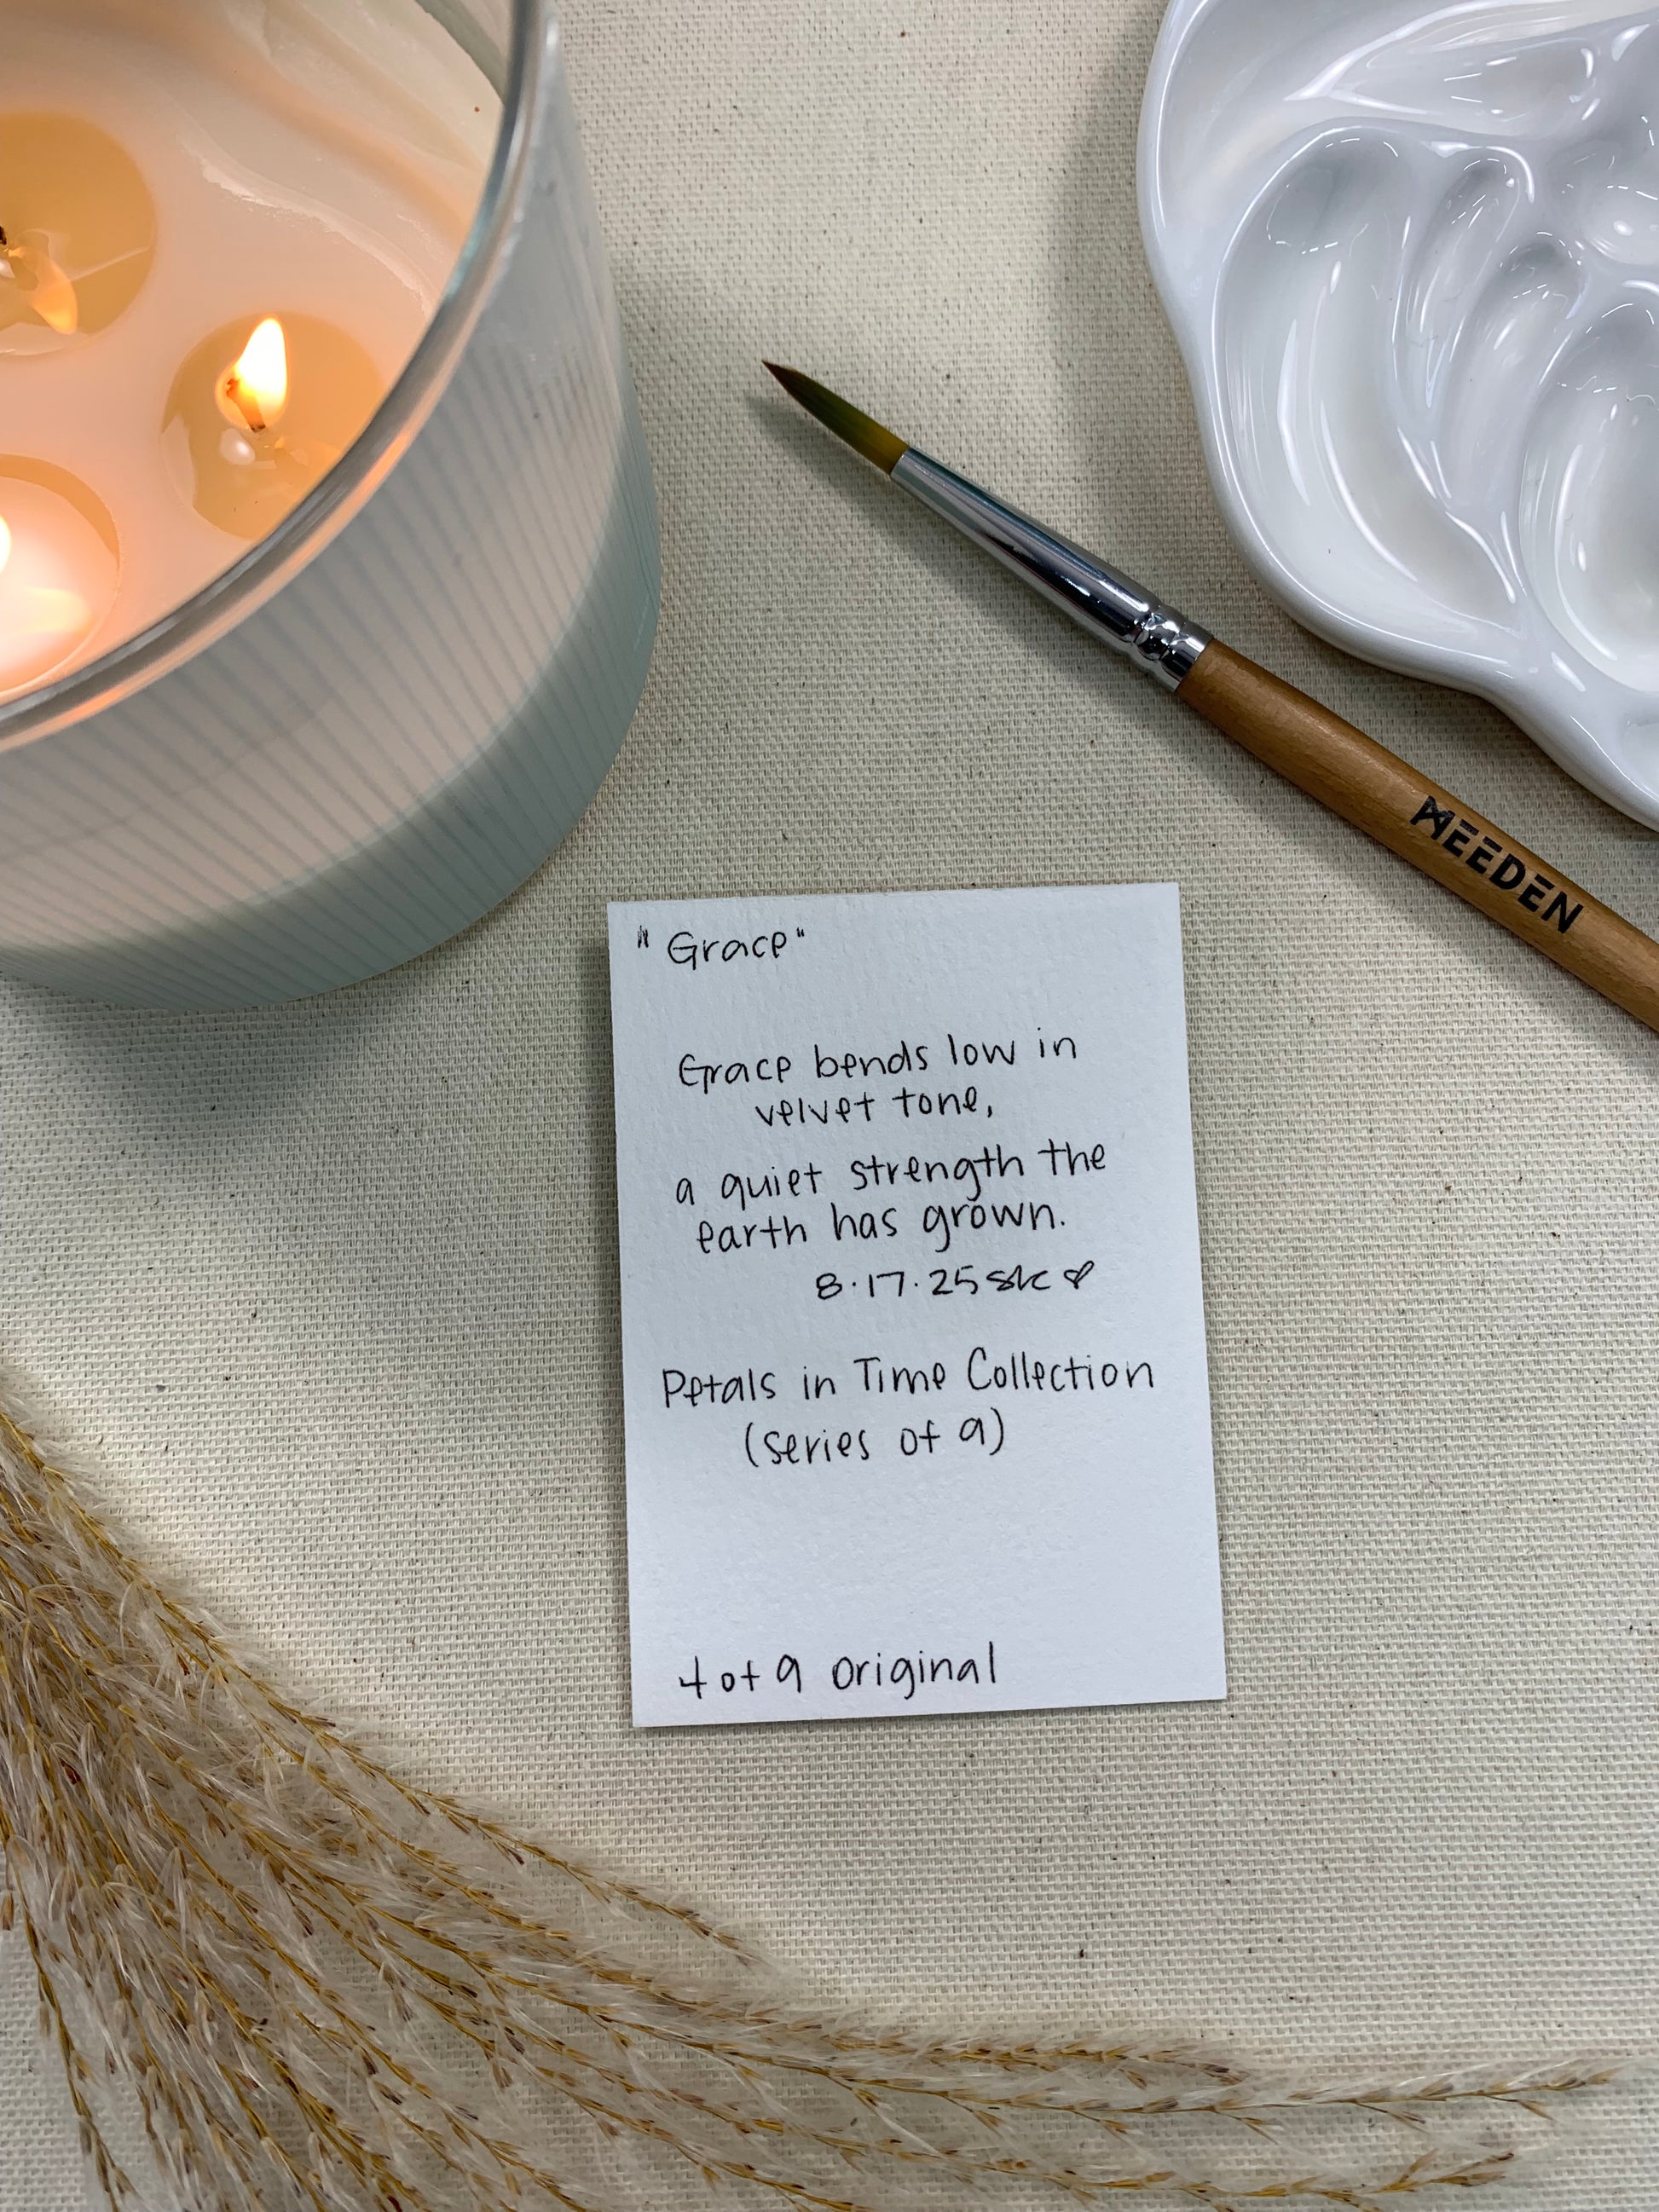 MEEDEN
"Grace"
Grace bends low in
velvet tone,
a quiet strength the
earth has grown.
8.17.25 sk ♡
Petals in Time Collection
(series of 9)
4 of 9 original